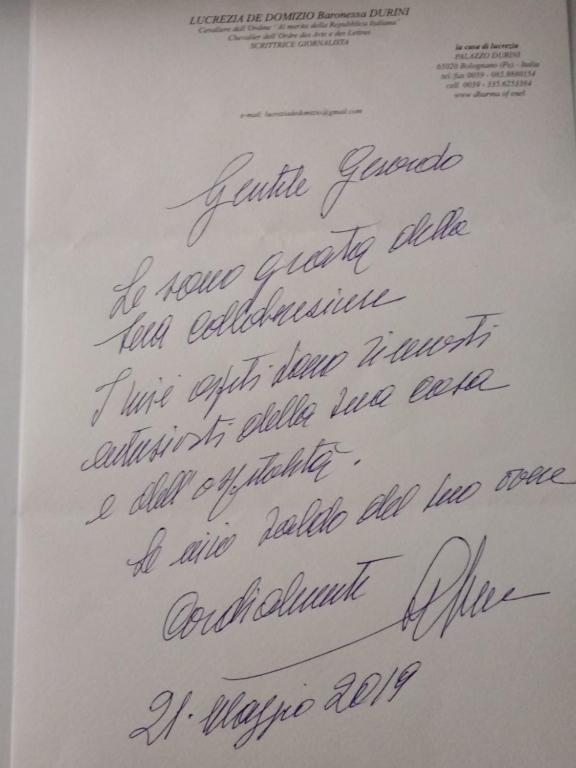 LUCREZIA DE DOMIZIO Baronessa DURINI
Cavaliere dell'Ordine "Al merito della Repubblica Italiana"
Chevalier dell'Ordre des Arts e des Lettres
SCRITTRICE GIORNALISTA
la casa di lucrezia
PALAZZO DURINI
65020 Bolognano (Pe) - Italia
tel/fax 0039 - 085.8880154
cell. 0039 - 335.6253364
www.dharma of enel
e-mail: lucreziadedomizio@gmail.com
Gentile Gerardo
Le sono grata della
sua collaborazione
I miei ospiti sono rimasti
entusiasti della sua casa
e dell'ospitalità.
Le invio saldo del suo avere
Cordialmente
21. Maggio 2019